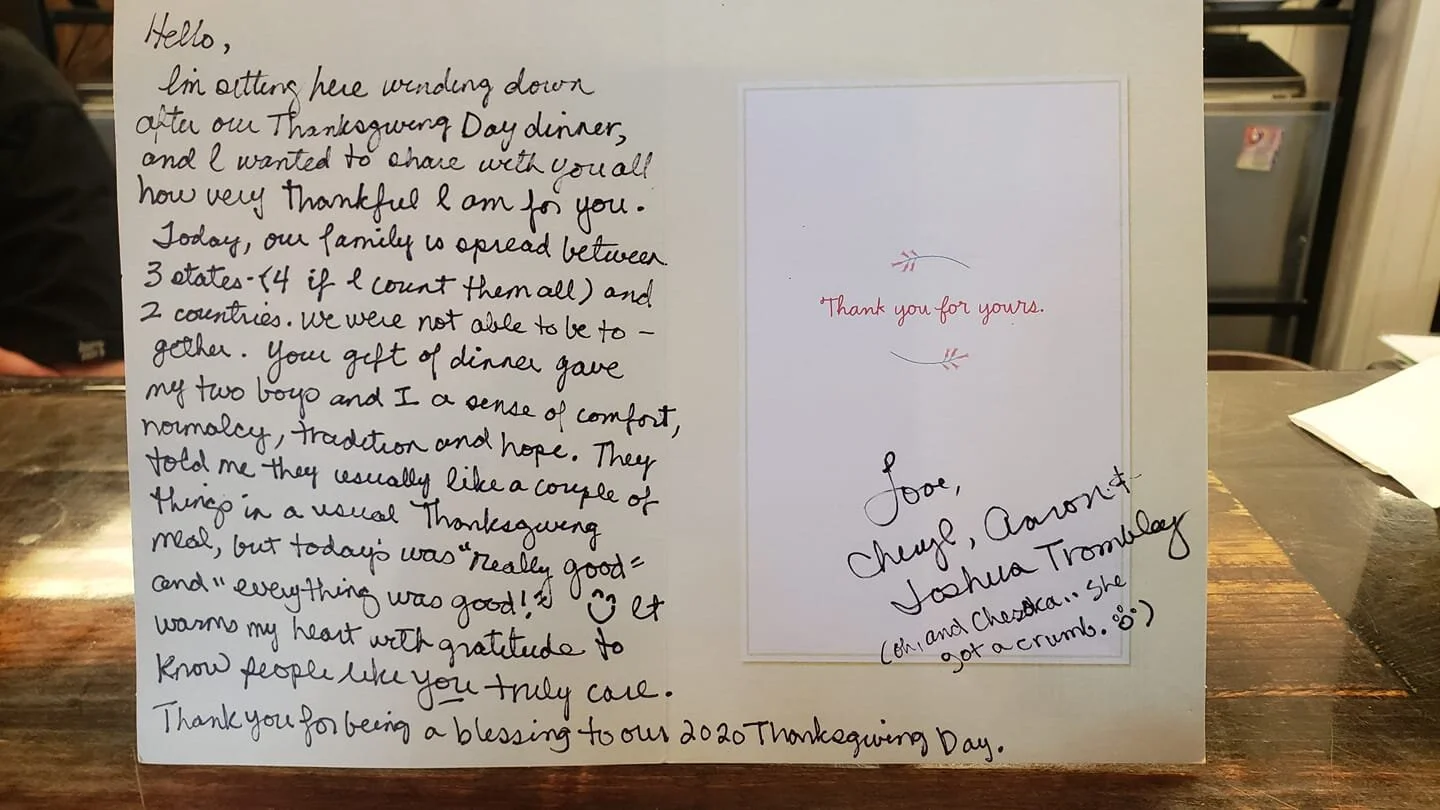 Hello,
I'm sitting here winding down
after our Thanksgiving Day dinner,
and I wanted to share with you all
how very thankful I am for you.
Today, our family is spread between
3 states-(4 if I count them all) and
2 countries. We were not able to be to-
gether. Your gift of dinner gave
my two boys and I a sense of comfort,
normalcy, tradition and hope. They
told me they usually like a couple of
things in a usual Thanksgiving
meal, but today's was "really good"
and "everything was good!" It
warms my heart with gratitude to
know people like you truly care.
Thank you for being a blessing to our 2020 Thanksgiving Day.
Thank you for yours.
Love,
Cheryl, Aaron &
Joshua Tromblay
(oh, and Chesska.. she
got a crumb. )